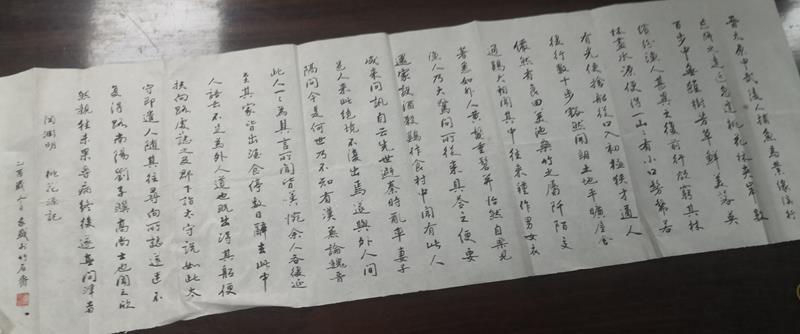 晋太原中武陵人捕魚為業緣溪行
忘路之遠近忽逢桃花林夾岸數
百步中無雜樹芳草鮮美落英
繽紛漁人甚異之復前行欲窮其林
林盡水源便得一山〻有小口髣髴若
有光便捨船從口入初極狹才通人
復行數十步豁然開朗土地平曠屋舍
儼然有良田美池桑竹之屬阡陌交
通鷄犬相聞其中往來種作男女衣
著悉如外人黃髮垂髫並怡然自樂見
漁人乃大驚問所從來具答之便要
還家設酒殺鷄作食村中聞有此人
咸來問訊自云先世避秦時亂率妻子
邑人來此絕境不復出焉遂與外人間
隔問今是何世乃不知有漢無論魏晉
此人一〻為具言所聞皆嘆惋余人各復延
至其家皆出酒食停數日辭去此中
人語云不足為外人道也既出得其船便
扶向路處〻誌之及郡下詣太守說如此太
守即遣人隨其往尋向所誌遂迷不
復得路南陽劉子驥高尚士也聞之欣
然規往未果尋病終後遂無問津者
陶淵明 桃花源記
乙酉歲 於竹石齋